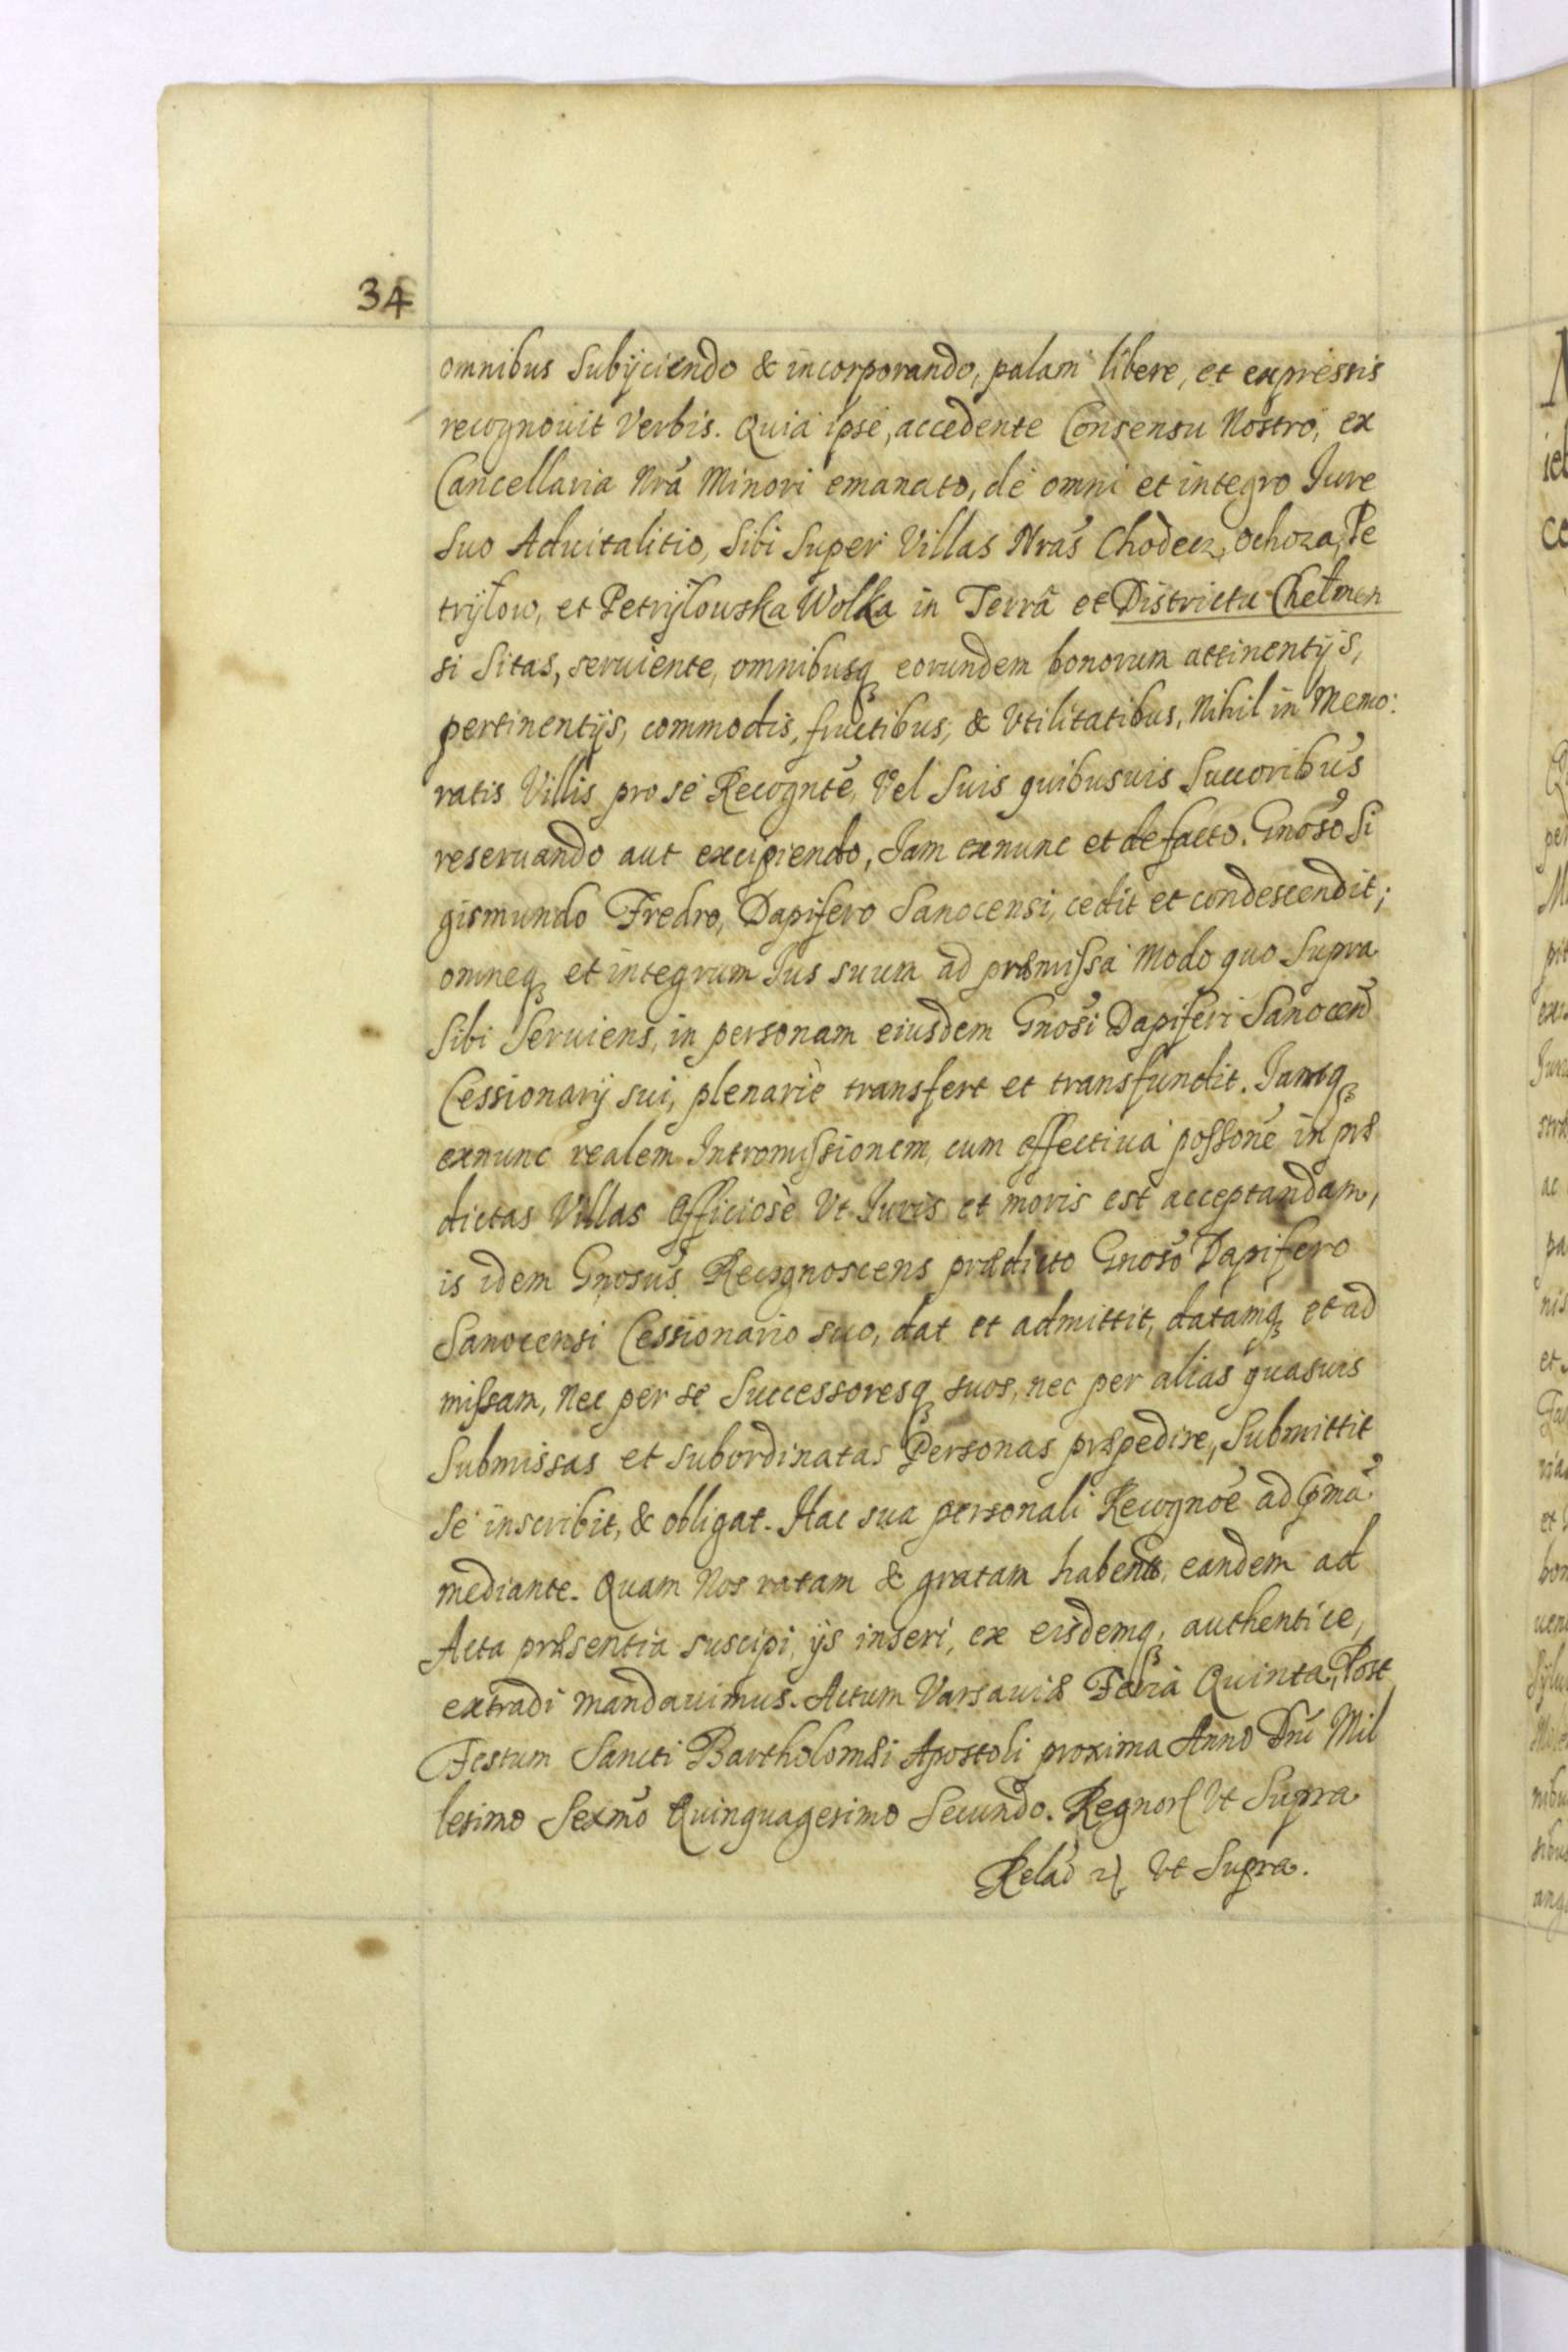 34
omnibus Subijciendo & incorporando, palam libere, et expressis
recognouit Verbis. Quia ipse, accedente Consensu Nostro, ex
Cancellaria Nrã Minori emanato, de omni et integro Iure
Suo Aduitalitio, Sibi Super Villas Nras Chodecz, Ochoza, Pe
tryłow, et Petryłowska Wolka in Terrâ et Districtu Chełmen
si Sitas, seruiente, omnibusq eorundem bonorum attinentijs,
pertinentijs, commodis, fructibus, & Vtilitatibus, Nihil in Memo:
ratis Villis pro se Recognte, Vel Suis quibusuis Succoribus
reseruando aut excipiendo, Iam exnunc et de facto. Gnoso Si
gismundo Fredro, Dapifero Sanocensi, cedit et condescendit;
omneq et integrum Ius suum ad præmissa Modo quo Supra
Sibi Seruiens, in personam eiusdem Gnosi Dapiferi Sanocen
Cessionarij sui, plenariè transfert et transfundit. Iamq
exnunc realem Intromissionem, cum effectiua possone in præ
dictas Villas Officiosè Vt Iuris et moris est acceptandam,
is idem Gnosus Recognoscens prædicto Gnoso Dapifero
Sanocensi Cessionario suo, dat et admittit, datamq et ad
missam, Nec per se Successoresq suos, nec per alias quasuis
Submissas et subordinatas Personas præpedire, Submittit
Se inscribit, & obligat. Hac sua personali Recognõe ad pmã
mediante. Quam Nos ratam & gratam habentes, eandem ad
Acta præsentia suscipi, ijs inseri, ex eisdemq, authentice,
extradi mandauimus. Actum Varsauiæ Feria Quinta, Post
Festum Sancti Bartholomæi Apostoli proxima Anno Dni Mil
lesimo Sexmo Quinquagesimo Secundo. Regnor Vt Supra
Relao Vt Supra.